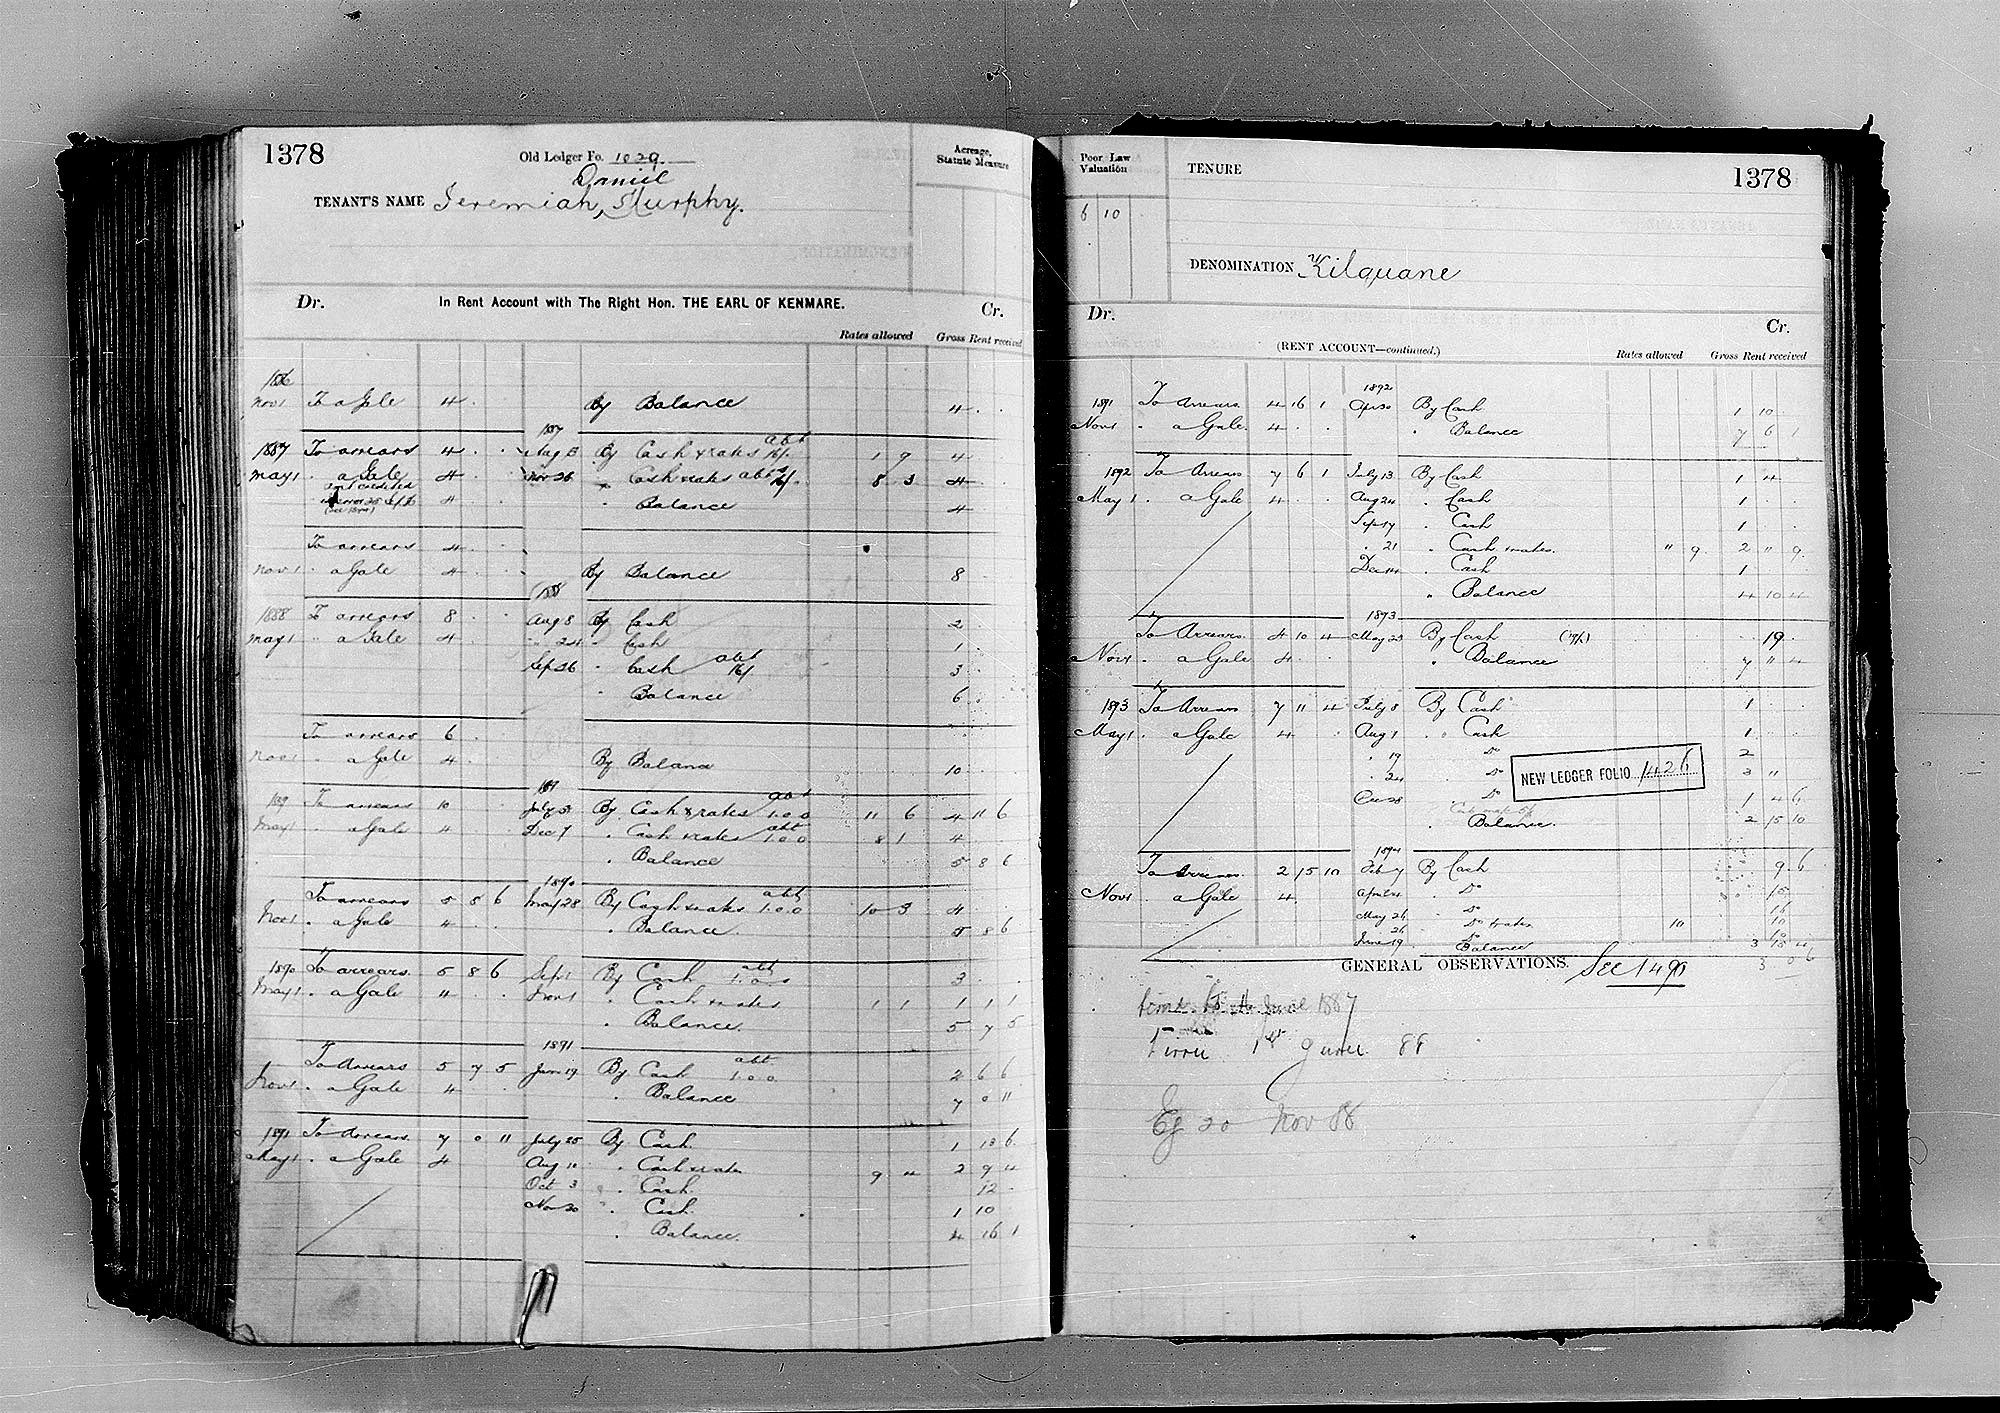 1378
Old Ledger Fo. 1029
Daniel
TENANT'S NAME Jeremiah, Murphy.
Acreage, Statute Measure
Dr. In Rent Account with The Right Hon. THE EARL OF KENMARE. Cr.
Rates allowed Gross Rent received
1886
Nov 1 To a Gale 4 . By Balance 4 . .
1887
1887 To arrears 4 . . Aug 13 By Cash & rates abt 16/- 1 9 4
May 1 . a Gale 4 . . Nov 26 . Cash & rates abt 16/- 8 3 4
4 . . Balance 4
To arrears 4 . .
Nov 1 . a Gale 4 . . By Balance 8
1888
1888 To arrears 8 . . Aug 8 By Cash 2
May 1 . a Gale 4 . . " 24 . Cash 1
Sep 26 . Cash abt 16/ 3
. Balance 6 .
To arrears 6 .
Nov 1 . a Gale 4 . By Balance 10 . .
1889
1889 To arrears 10 . July 31 By Cash & rates abt 1.0.0 11 6 4 11 6
May 1 . a Gale 4 . Dec 7 . Cash & rates abt 1.0.0 8 1 4
. Balance 5 8 6
1890
To arrears 5 8 6 May 28 By Cash & rates abt 1.0.0 10 3 4
Nov 1 . a Gale 4 . . Balance 5 8 6
1890 To arrears. 5 8 6 Sep 1 By Cash abt 1.0.0 3 . .
May 1 . a Gale 4 . . Nov 1 . Cash & rates 1 1 1 1 1
. Balance. 5 7 5
1891
To Arrears 5 7 5 Jan 19 By Cash abt 1.0.0 2 6 6
Nov 1 . a Gale 4 . . Balance 7 0 11
1891 To Arrears. 7 0 11 July 25 By Cash. 1 13 6
May 1 . a Gale 4 Aug 11 . Cash & rates 9 4 2 9 4
Oct 3 . Cash. 12 .
Nov 20 . Cash. 1 10
. Balance. 4 16 1
Poor Law Valuation
TENURE
1378
6 10
DENOMINATION Kilquane
Dr. Cr.
(RENT ACCOUNT—continued.) Rates allowed Gross Rent received
1892
1891 To Arrears. 4 16 1 Apr 30 By Cash 1 10
Nov 1 . a Gale. 4 . . Balance 7 6 1
1892 To Arrears 7 6 1 July 13 By Cash 1 4
May 1 . a Gale 4 . . Aug 24 . Cash 1 . .
Sep 17 . Cash 1 . .
. 21 . Cash & rates. " 9. 2 " 9.
Dec 14 . Cash 1
" Balance 4 10 4
1893
To Arrears. 4 10 4 May 23 By Cash 19 .
Nov 1 . a Gale 4 . . " Balance 7 11 4
1893 To Arrears 7 11 4 July 8 By Cash 1
May 1 . a Gale 4 . . Aug 1 . Cash 1 . .
. 19 . Do 2
. 24 . Do 3 "
NEW LEDGER FOLIO 1426
Dec 28 Do 1 4 6
. Balance. 2 15 10
1894
To Arrears. 2 15 10 Feb 7 By Cash 9 6
Nov 1 . a Gale 4 . April 4 . Do 15
May 26 . Do 16
26 . Do & rates 10 10
June 19 Do
Balance
GENERAL OBSERVATIONS. See 1490
June 1887
1st June 88
Ej 20 Nov 88